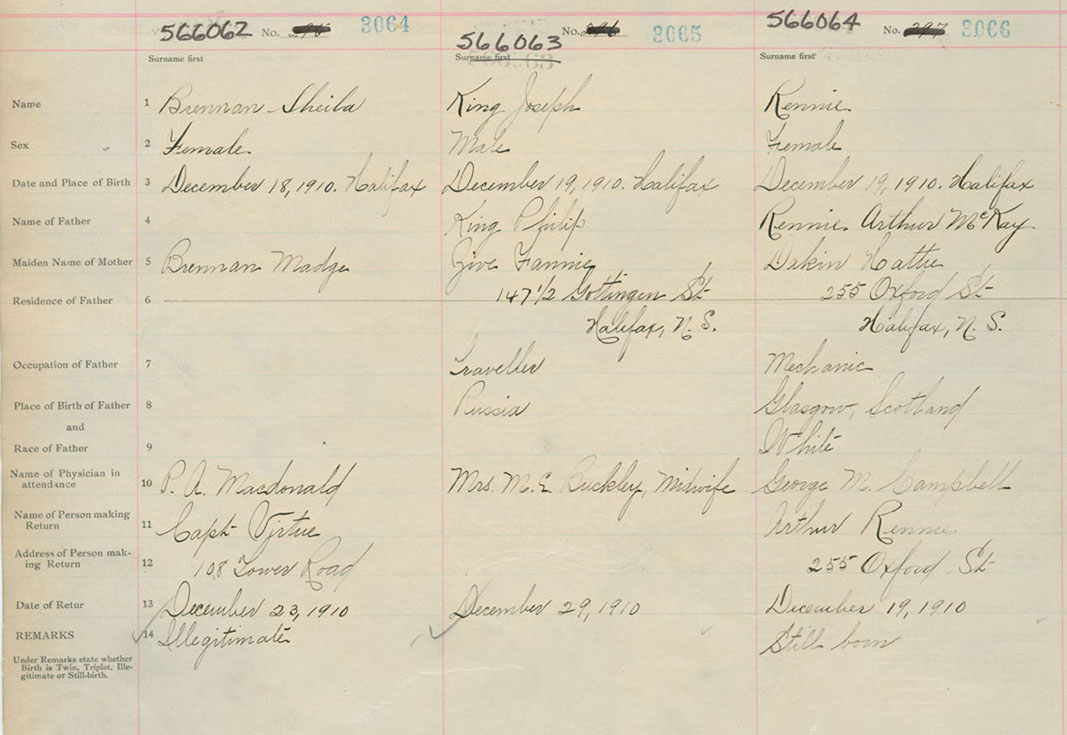 566062 No. 3064
566063 No. 2065
566064 No. 3066
Surname first Surname first Surname first
Name 1 Brennan Sheila King Joseph Rennie
Sex 2 Female Male Female
Date and Place of Birth 3 December 18, 1910. Halifax December 19, 1910. Halifax December 19, 1910. Halifax
Name of Father 4 King Philip Rennie Arthur McKay
Maiden Name of Mother 5 Brennan Madge Zive Fannie Dakin Hattie
Residence of Father 6 147 1/2 Gottingen St 255 Oxford St
Halifax, N. S. Halifax, N. S.
Occupation of Father 7 Traveller Mechanic
Place of Birth of Father 8 Russia Glasgow, Scotland
and
Race of Father 9 White
Name of Physician in
attendance 10 P. A. Macdonald Mrs. M. E Buckley, Midwife George M. Campbell
Name of Person making
Return 11 Capt Virtue Arthur Rennie
Address of Person mak-
ing Return 12 108 Tower Road 255 Oxford St
Date of Retur 13 December 23, 1910 December 29, 1910 December 19, 1910
REMARKS 14 Illegitimate Still born
Under Remarks state whether
Birth is Twin, Triplet, Ille-
gitimate or Still-birth.